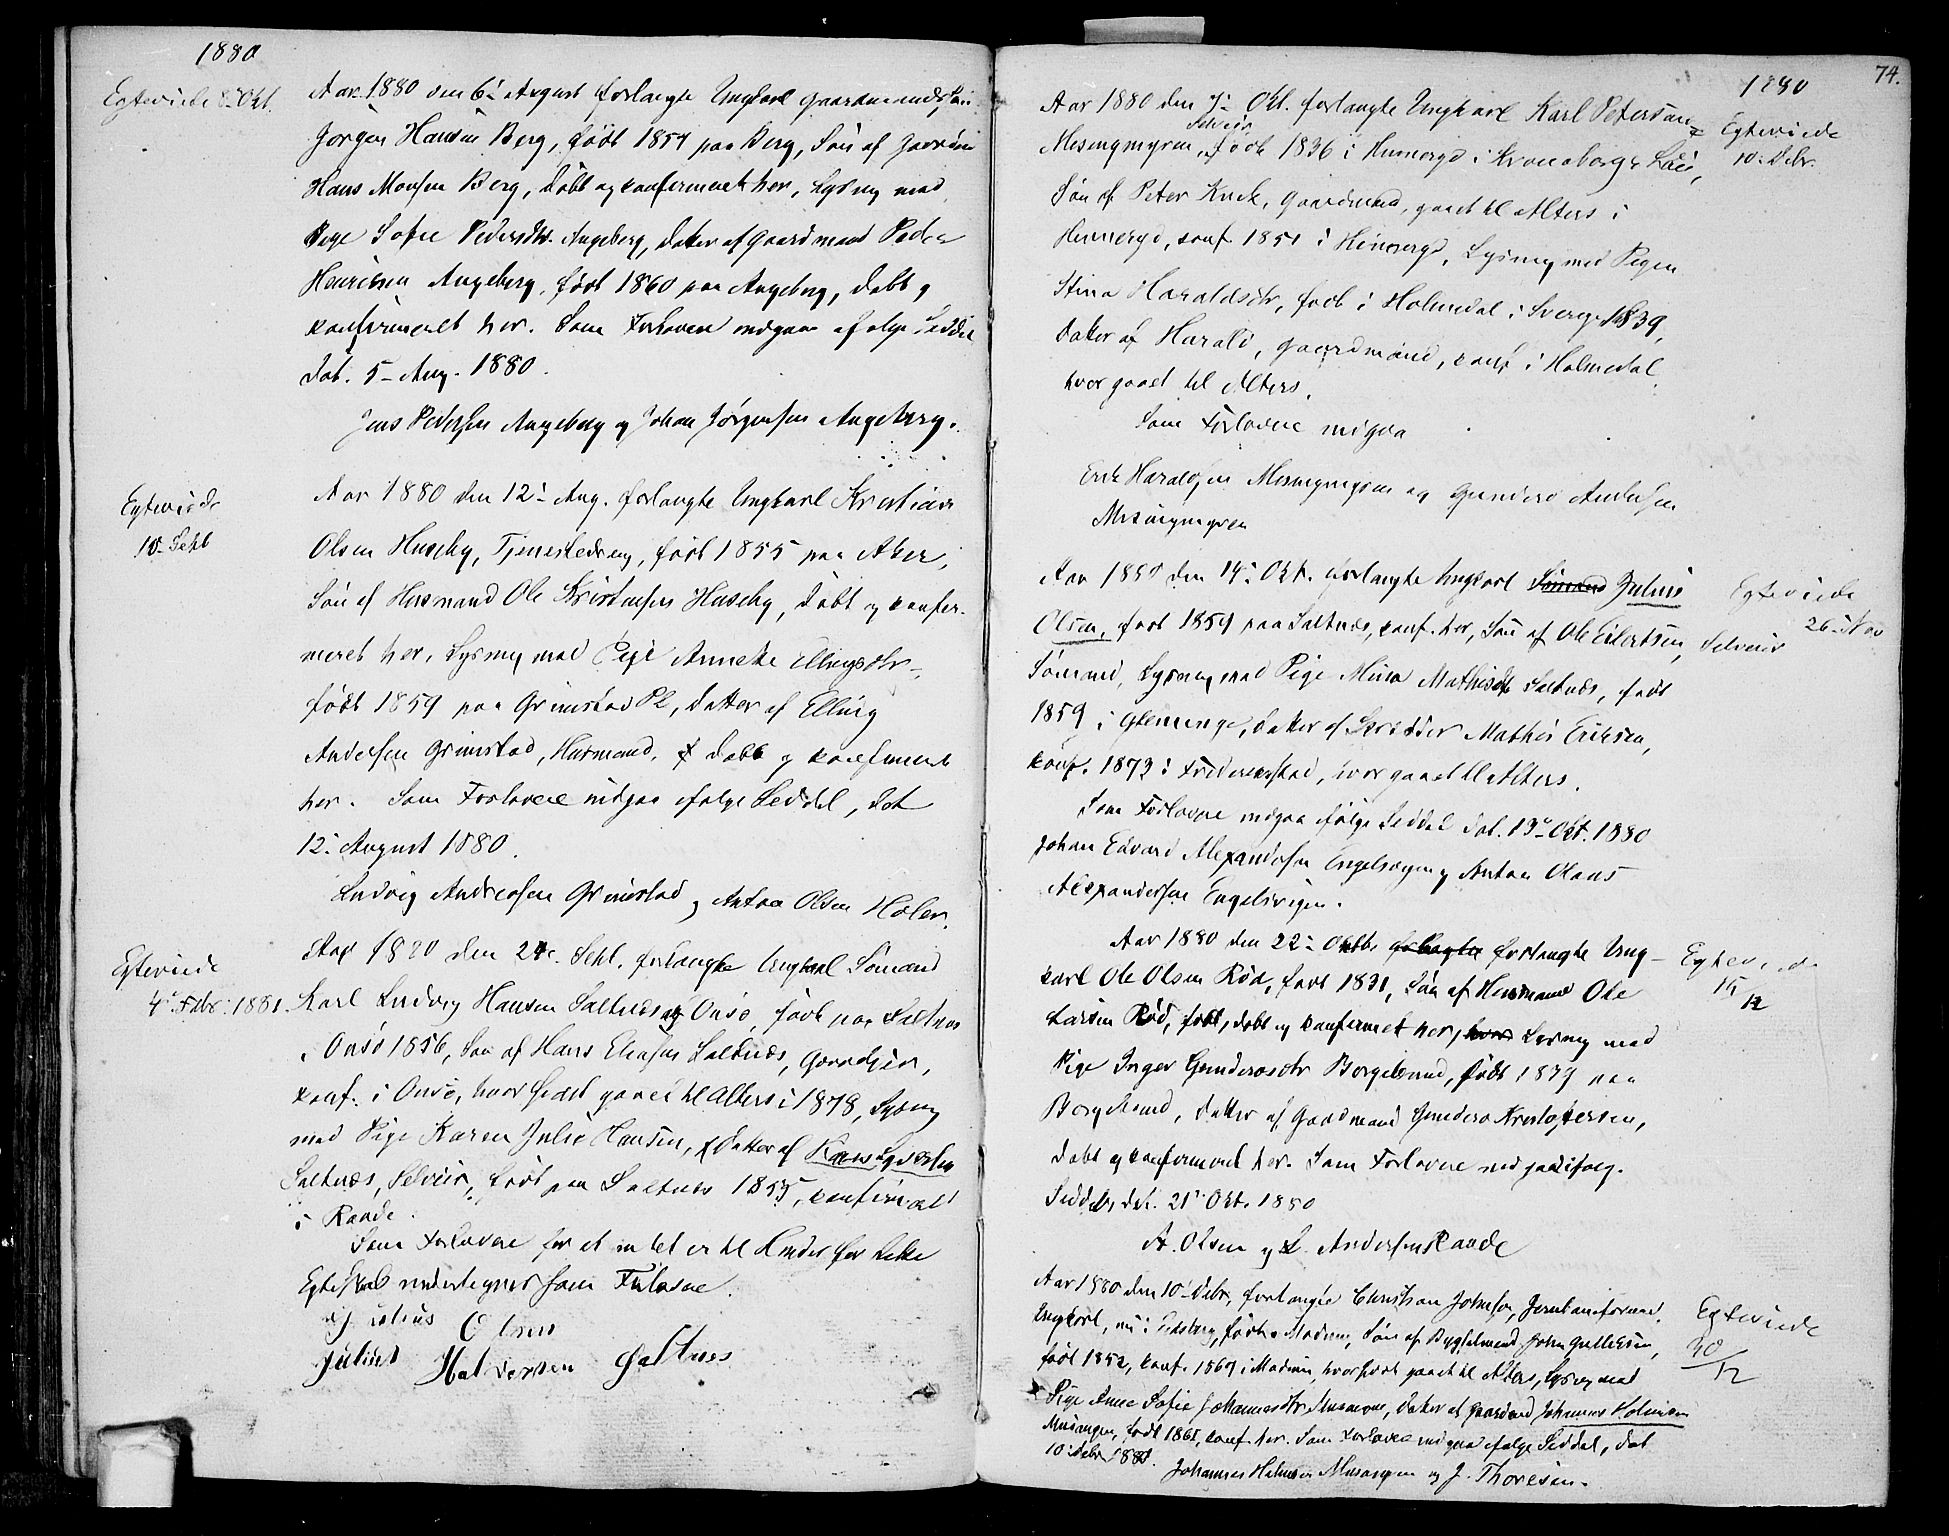 1880
Egteviede 8- Okt.
Aar 1880 den 6- August forlangte Ungkarl Gaardmandssön
Jörgen Hansen Berg, födt 1854 paa Berg, Sön af Gaardm.
Hans Monsen Berg, döbt og konfirmeret her, Lysning med
Pige Sofie Pedersdtr. Augeberg, datter af Gaardmand Peder
Henriksen Augeberg, födt 1860 paa Augeberg, döbt og
konfirmeret her. Som Forlovere indgaa ifölge Seddel
dat. 5- Aug. 1880.
Jens Pedersen Augeberg og Johan Jörgensen Augeberg.
Egteviede
10- Sept
Aar 1880 den 12- Aug. forlangte Ungkarl Kristian
Olsen Huseby, Tjenestedreng, födt 1855 paa Aker,
Sön af Husmand Ole Kristensen Huseby, döbt og konfir-
meret her, Lysning med Pige Anneke Ellingsdtr.
födt 1859 paa Grimstad Pl, datter af Elling
Andersen Grimstad, Husmand, döbt og konfirmeret
her. Som Forlovere indgaa ifölge Seddel, dat
12- August 1880.
Ludvig Andreasen Grimstad og Anton Olsen Holer.
Egteviede
4- Febr. 1881.
Aar 1880 den 24- Sept. forlangte Ungkarl Sömand
Karl Ludvig Hansen Saltnes af Onsö, födt paa Saltnes
i Onsö 1856, Sön af Hans Eliasen Saltnæs, Gaardejer,
konf. i Onsö, hvor sidst gaaet til Alters i 1878, Lysning
med Pige Karen Julie Hansen, datter af Hans
Saltnæs, Selveier, födt paa Saltnes 1855, konfirmeret
i Raade.
Som Forlovere for at intet er til Hinder for dette
Egteskab undertegnes som Forlovere.
Julius Olsen
Julius Halvorsen Saltnes
74.
1880
Aar 1880 den 7- Okt. forlangte Ungkarl Karl Petersen
Selveier
Mesingmyren, födt 1836 i Hemeryd i Kronobergs Län,
Sön af Peter Kuek, Gaardmand, gaaet til Alters i
Hemeryd, konf. 1851 i Hemeryd, Lysning med Pigen
Stina Haraldsdtr, födt i Holmedal i Sverige 1839,
datter af Harald, Gaardmand, konf i Holmedal
hvor gaaet til Alters.
Som Forlovere indgaa
Erik Haraldsen Mesingmyren og Gundero Andersen
Mesingmyren
Egteviede
10- Debr.
Aar 1880 den 14- Okt. forlangte Ungkarl Sömand Julius
Olsen, födt 1854 paa Saltnæs, konf. her, Sön af Ole Eilertsen, Selveier
Sömand, Lysning med Pige Mina Mathisdtr Saltnæs, födt
1859 i Glemminge, datter af Skrædder Mathis Eriksen,
konf. 1873 i Frederiksstad, hvor gaaet til Alters.
Som Forlovere indgaa ifölge Seddel dat. 13- Okt. 1880
Johan Edvard Alexandersen Engelsvigen og Anton Olaus
Alexandersen Engelsvigen.
Egteviede
26- Nov
Aar 1880 den 22- Oktbr forlangte forlangte Ung-
karl Ole Olsen Röd, födt 1831, Sön af Husmand Ole
Larsen Röd, födt, döbt og konfirmeret her, hvor Lysning med
Pige Inger Gunderosdtr Borgelsrud, födt 1837 paa
Borgelsrud, datter af Gaardmand Gundero Kristofersen,
döbt og konfirmeret her. Som Forlovere indgaa ifölg.
Seddel, dat. 21- Okt. 1880
A. Olsen og L. Andersen Raade
Egteviede
15/12
Aar 1880 den 10- Debr, forlangte Christian Johnsen, Jernbaneformand,
Ungkarl, nu i Eidsberg, födt i Modum, Sön af Bygselmand John Gulliksen,
födt 1852, konf. 1867 i Modum, hvor sidst gaaet til Alters, Lysning med
Pige Anne Sofie Johannesdtr Musangen, datter af Gaardmd Johannes Holmsen
Musangen, födt 1861, konf. her. Som Forlovere indgaa ifölge Seddel, dat
10- Debr 1880.
Johannes Holmsen Musangen og J. Thoresen.
Egteviede
30/12